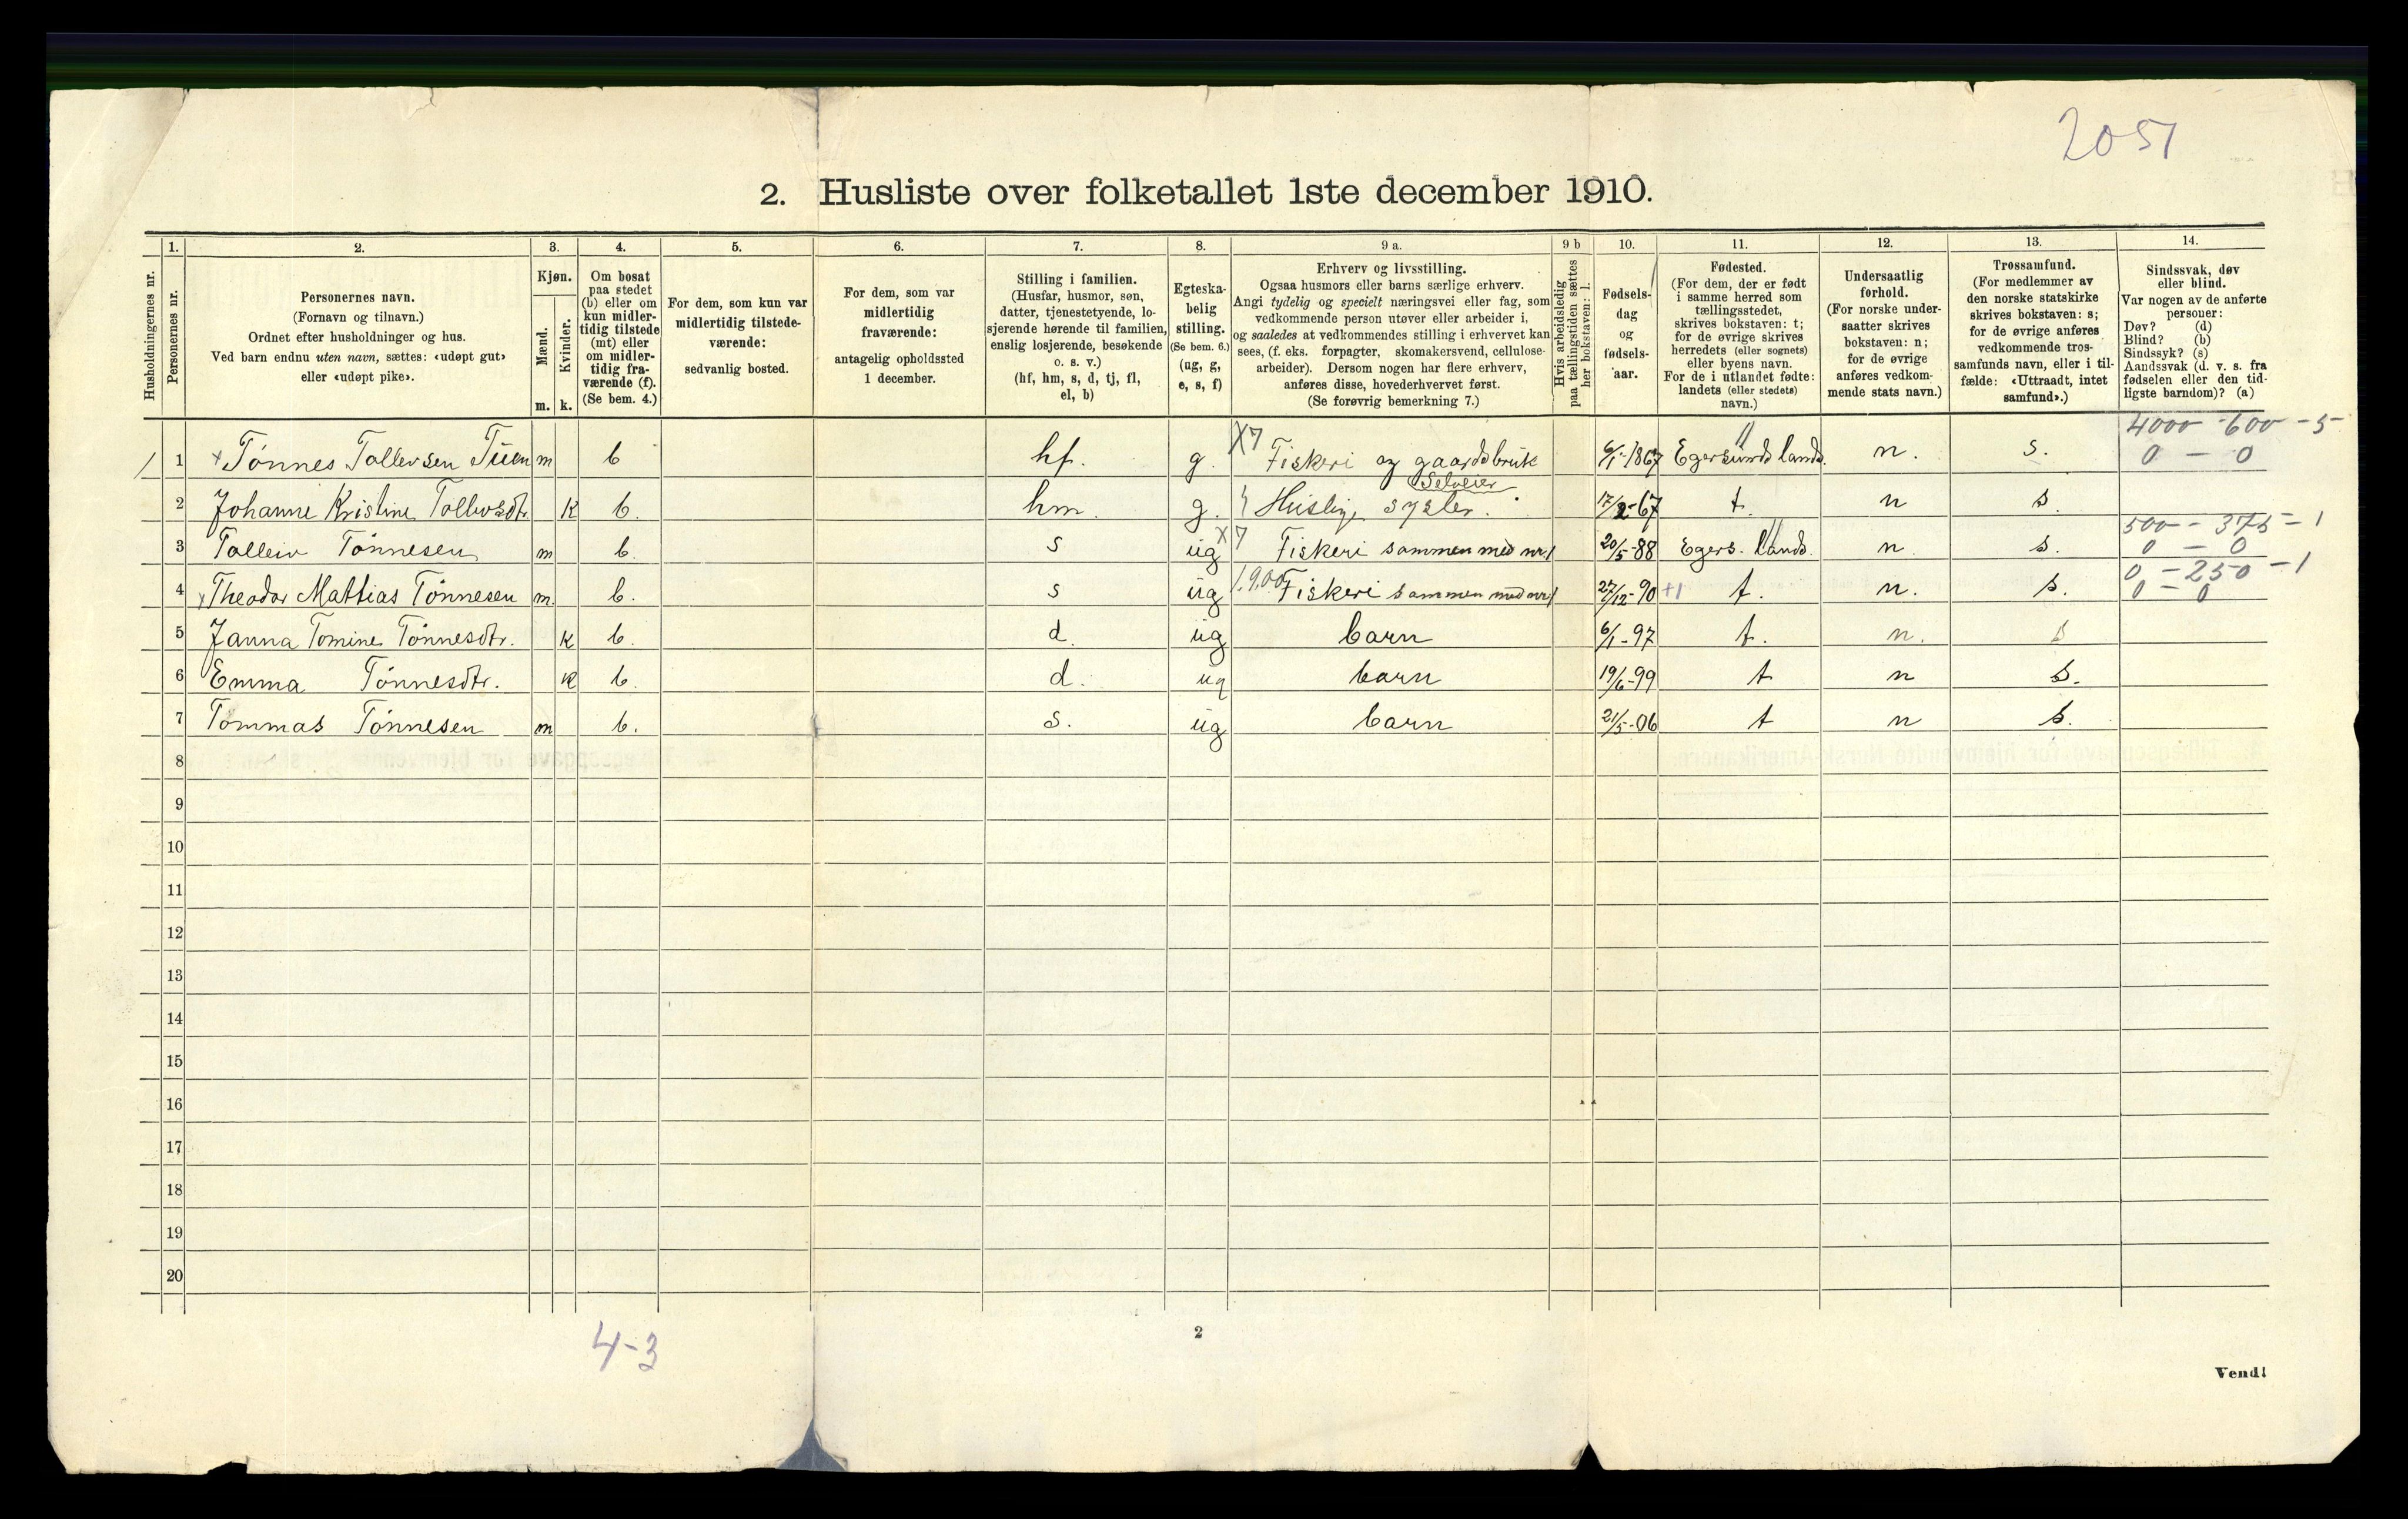 2051
2. Husliste over folketallet 1ste december 1910.
1. 2. 3. 4. 5. 6. 7. 8. 9 a. 9 b 10. 11. 12. 13. 14.
Husholdningernes nr.
Personernes nr.
Personernes navn.
(Fornavn og tilnavn.)
Ordnet efter husholdninger og hus.
Ved barn endnu uten navn, sættes: «udøpt gut»
eller «udøpt pike».
Kjøn.
Mænd.
Kvinder.
m. k.
Om bosat
paa stedet
(b) eller om
kun midler-
tidig tilstede
(mt) eller
om midler-
tidig fra-
værende (f).
(Se bem. 4.)
For dem, som kun var
midlertidig tilstede-
værende:
sedvanlig bosted.
For dem, som var
midlertidig
fraværende:
antagelig opholdssted
1 december.
Stilling i familien.
(Husfar, husmor, søn,
datter, tjenestetyende, lo-
sjerende hørende til familien,
enslig losjerende, besøkende
o. s. v.)
(hf, hm, s, d, tj, fl,
el, b)
Egteska-
belig
stilling.
(Se bem. 6.)
(ug, g,
e, s, f)
Erhverv og livsstilling.
Ogsaa husmors eller barns særlige erhverv.
Angi tydelig og specielt næringsvei eller fag, som
vedkommende person utøver eller arbeider i,
og saaledes at vedkommendes stilling i erhvervet kan
sees, (f. eks. forpagter, skomakersvend, cellulose-
arbeider). Dersom nogen har flere erhverv,
anføres disse, hovederhvervet først.
(Se forøvrig bemerkning 7.)
Hvis arbeidsledig
paa tællingstiden sættes
her bokstaven: l.
Fødsels-
dag
og
fødsels-
aar.
Fødested.
(For dem, der er født
i samme herred som
tællingsstedet,
skrives bokstaven: t;
for de øvrige skrives
herredets (eller sognets)
eller byens navn.
For de i utlandet fødte:
landets (eller stedets)
navn.)
Undersaatlig
forhold.
(For norske under-
saatter skrives
bokstaven: n;
for de øvrige
anføres vedkom-
mende stats navn.)
Trossamfund.
(For medlemmer av
den norske statskirke
skrives bokstaven: s;
for de øvrige anføres
vedkommende tros-
samfunds navn, eller i til-
fælde: «Uttraadt, intet
samfund».)
Sindssvak, døv
eller blind.
Var nogen av de anførte
personer:
Døv? (d)
Blind? (b)
Sindssyk? (s)
Aandssvak (d. v. s. fra
fødselen eller den tid-
ligste barndom)? (a)
4000 - 600 - 5
1 Tønnes Tollevsen Tuen m b hf. g. X7 Fiskeri og gaardsbruk 6/1-1867 Egersunds lands. n. s. 0 - 0
Selveier
2 Johanne Kristine Tollevsdtr. k b. hm. g. Huslige sysler. 17/2-67 t. n s.
500 - 375 - 1
3 Tolleiv Tønnesen m b. s ug X7 Fiskeri sammen med nr 1 20/5-88 Egers. lands. n. s. 0 - 0
0 - 250 - 1
4 Theodor Mattias Tønnesen m. b. s ug 1.9.00 Fiskeri sammen med nr 1 27/12-90 +1 t. n. s. 0 - 0
5 Janna Tomine Tønnesdtr. k b. d. ug barn 6/1-97 t. n. s
6 Emma Tønnesdtr. k b. d. ug barn 19/6-99 t n s.
7 Tommas Tønnesen m b. s. ug barn 21/5-06 t n s.
8
9
10
11
12
13
14
15
16
17
18
19
20
4-3
2
Vend!